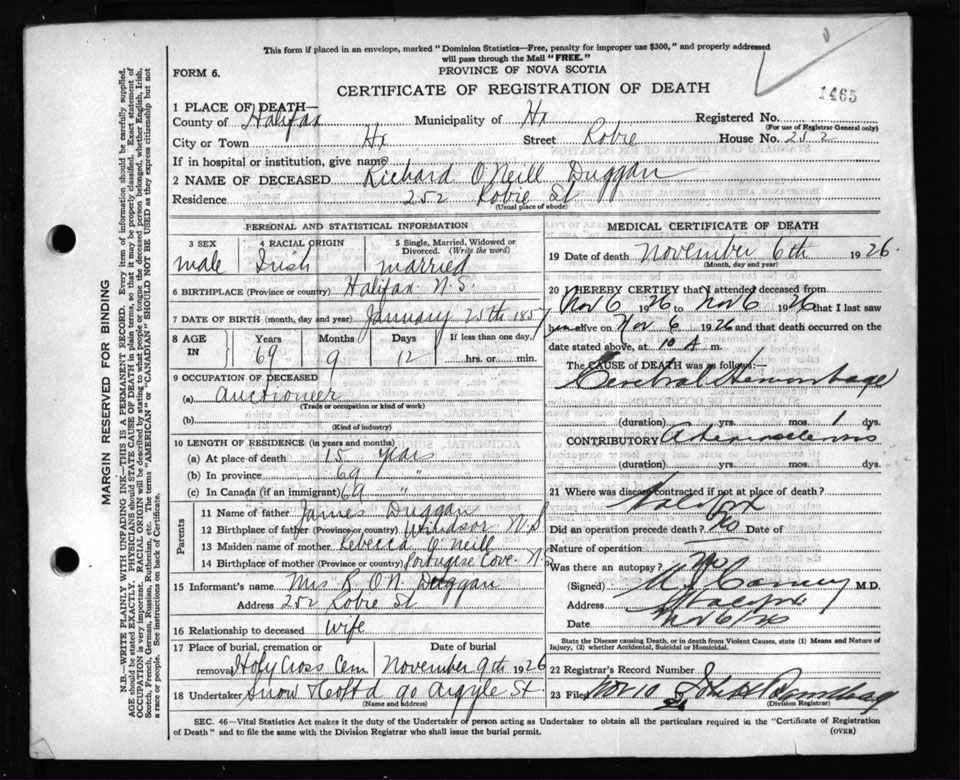 This form if placed in an envelope, marked "Dominion Statistics—Free, penalty for improper use $300," and properly addressed
will pass through the Mail "FREE."
FORM 6.
PROVINCE OF NOVA SCOTIA
CERTIFICATE OF REGISTRATION OF DEATH
1465
1 PLACE OF DEATH—
County of Halifax Municipality of Hx Registered No.
(For use of Registrar General only)
City or Town Hx Street Robie House No. 252
If in hospital or institution, give name
2 NAME OF DECEASED Richard O'Neill Duggan
Residence 252 Robie St
(Usual place of abode)
PERSONAL AND STATISTICAL INFORMATION
3 SEX 4 RACIAL ORIGIN 5 Single, Married, Widowed or
Divorced. (Write the word)
male Irish married
6 BIRTHPLACE (Province or country) Halifax N.S.
7 DATE OF BIRTH (month, day and year) January 25th 1857
8 AGE IN Years Months Days If less than one day,
69 9 12 hrs. or min.
9 OCCUPATION OF DECEASED
(a) auctioner
(Trade or occupation or kind of work)
(b)
(Kind of industry)
10 LENGTH OF RESIDENCE (in years and months)
(a) At place of death 15 years
(b) In province 69 "
(c) In Canada (if an immigrant) 69 "
Parents
11 Name of father James Duggan
12 Birthplace of father (Province or country) Windsor N.S
13 Maiden name of mother Rebecca O'Neill
14 Birthplace of mother (Province or country) Portugese Cove N.S
15 Informant's name Mrs R. O'N. Duggan
Address 252 Robie St
16 Relationship to deceased wife
17 Place of burial, cremation or Date of burial
removal Holy Cross Cem November 9th 1926
18 Undertaker Snow & Co Ltd 90 Argyle St.
(Name and address)
MEDICAL CERTIFICATE OF DEATH
19 Date of death November 6th 1926
(Month, day and year)
20 I HEREBY CERTIFY that I attended deceased from
Nov 6 1926 to Nov 6 1926 that I last saw
him alive on Nov 6 1926 and that death occurred on the
date stated above, at 10 A m.
The CAUSE of DEATH was as follows:
Cerebral Hemorrhage
(duration) yrs. mos. 1 dys.
CONTRIBUTORY
(duration) yrs. mos. dys.
21 Where was disease contracted if not at place of death?
Halifax
Did an operation precede death? No Date of
Nature of operation
Was there an autopsy? No
(Signed) M.D.
Address Halifax
Date Nov 6/26
State the Disease causing Death, or in death from Violent Causes, state (1) Means and Nature of
Injury, (2) whether Accidental, Suicidal or Homicidal.
22 Registrar's Record Number
23 Filed Nov 10
(Division Registrar)
SEC. 46—Vital Statistics Act makes it the duty of the Undertaker or person acting as Undertaker to obtain all the particulars required in the "Certificate of Registration
of Death" and to file the same with the Division Registrar who shall issue the burial permit.
(OVER)
MARGIN RESERVED FOR BINDING
N.B.—WRITE PLAINLY WITH UNFADING INK—THIS IS A PERMANENT RECORD. Every item of information should be carefully supplied.
AGE should be stated EXACTLY. PHYSICIANS should STATE CAUSE OF DEATH in plain terms, so that it may be properly classified. Exact statement of
OCCUPATION is very important. RACIAL ORIGIN will be described by stating to what people or tongue the deceased person belonged, whether English, Irish,
Scotch, French, German, Russian, Ruthenian, etc. The terms "AMERICAN" or "CANADIAN" SHOULD NOT BE USED as they express citizenship but not
a race or people. See instructions on back of Certificate.